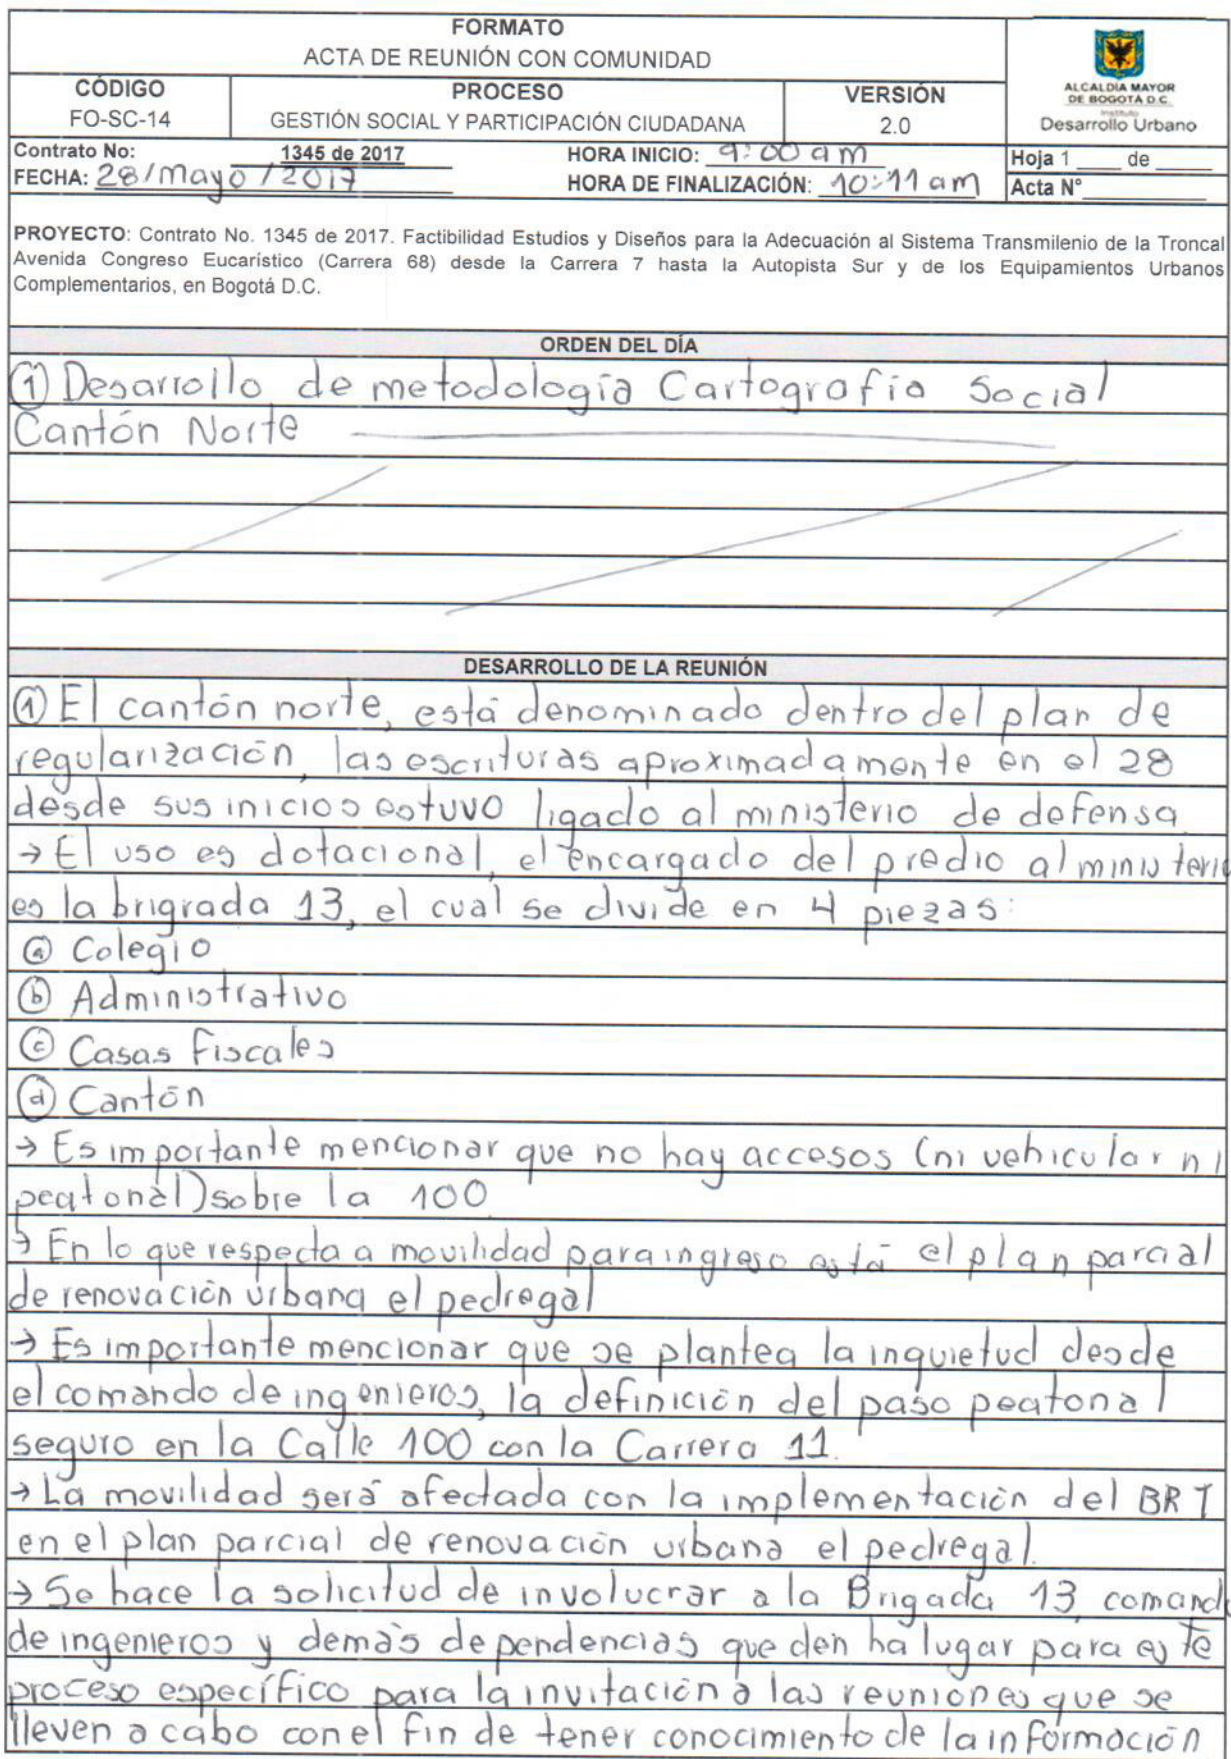 FORMATO
ACTA DE REUNIÓN CON COMUNIDAD
CÓDIGO
FO-SC-14
PROCESO
GESTIÓN SOCIAL Y PARTICIPACIÓN CIUDADANA
VERSIÓN
2.0
ALCALDÍA MAYOR
DE BOGOTÁ D.C.
Instituto
Desarrollo Urbano
Contrato No: 1345 de 2017
HORA INICIO: 9:00 am
Hoja 1 ____ de ____
FECHA: 28/Mayo/2017
HORA DE FINALIZACIÓN: 10:11 am
Acta N°
PROYECTO: Contrato No. 1345 de 2017. Factibilidad Estudios y Diseños para la Adecuación al Sistema Transmilenio de la Troncal
Avenida Congreso Eucarístico (Carrera 68) desde la Carrera 7 hasta la Autopista Sur y de los Equipamientos Urbanos
Complementarios, en Bogotá D.C.
ORDEN DEL DÍA
① Desarrollo de metodología Cartografía Social
Cantón Norte
DESARROLLO DE LA REUNIÓN
① El cantón norte, está denominado dentro del plan de
regularización, las escrituras aproximadamente en el 28
desde sus inicios estuvo ligado al ministerio de defensa
→ El uso es dotacional, el encargado del predio al ministerio
es la brigrada 13, el cual se divide en 4 piezas:
ⓐ Colegio
ⓑ Administrativo
ⓒ Casas fiscales
ⓓ Cantón
→ Es importante mencionar que no hay accesos (ni vehicular ni
peatonal) sobre la 100
→ En lo que respecta a movilidad para ingreso está el plan parcial
de renovación urbana el pedregal
→ Es importante mencionar que se plantea la inquietud desde
el comando de ingenieros, la definición del paso peatonal
seguro en la Calle 100 con la Carrera 11.
→ La movilidad será afectada con la implementación del BRT
en el plan parcial de renovación urbana el pedregal.
→ Se hace la solicitud de involucrar a la Brigada 13, comando
de ingenieros y demás dependencias que den ha lugar para este
proceso específico para la invitación a las reuniones que se
lleven a cabo con el fin de tener conocimiento de la información